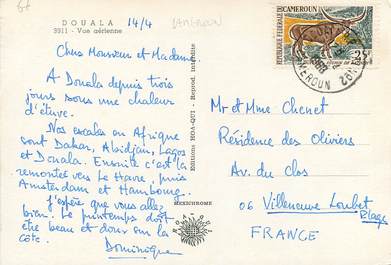 DOUALA
3911 - Vue aérienne
14/4
CAMEROUN
Chers Monsieur et Madame.
A Douala depuis trois
jours sous une chaleur
d'étuve.
Nos escales en Afrique
sont Dakar, Abidjan, Lagos
et Douala. Ensuite c'est la
remontée vers Le Havre, puis
Amsterdam et Hambourg.
J'espère que vous allez
bien. Le printemps doit
être beau et doux sur la
côte.
Dominique
Editions HOA-QUI - Reprod. interdite
MEXICHROME
REPUBLIQUE FEDERALE
DU CAMEROUN
25F
CAMEROUN
Mr et Mme Chenet
Résidence des Oliviers
Av. du Clos
06 Villeneuve Loubet
Plage
FRANCE